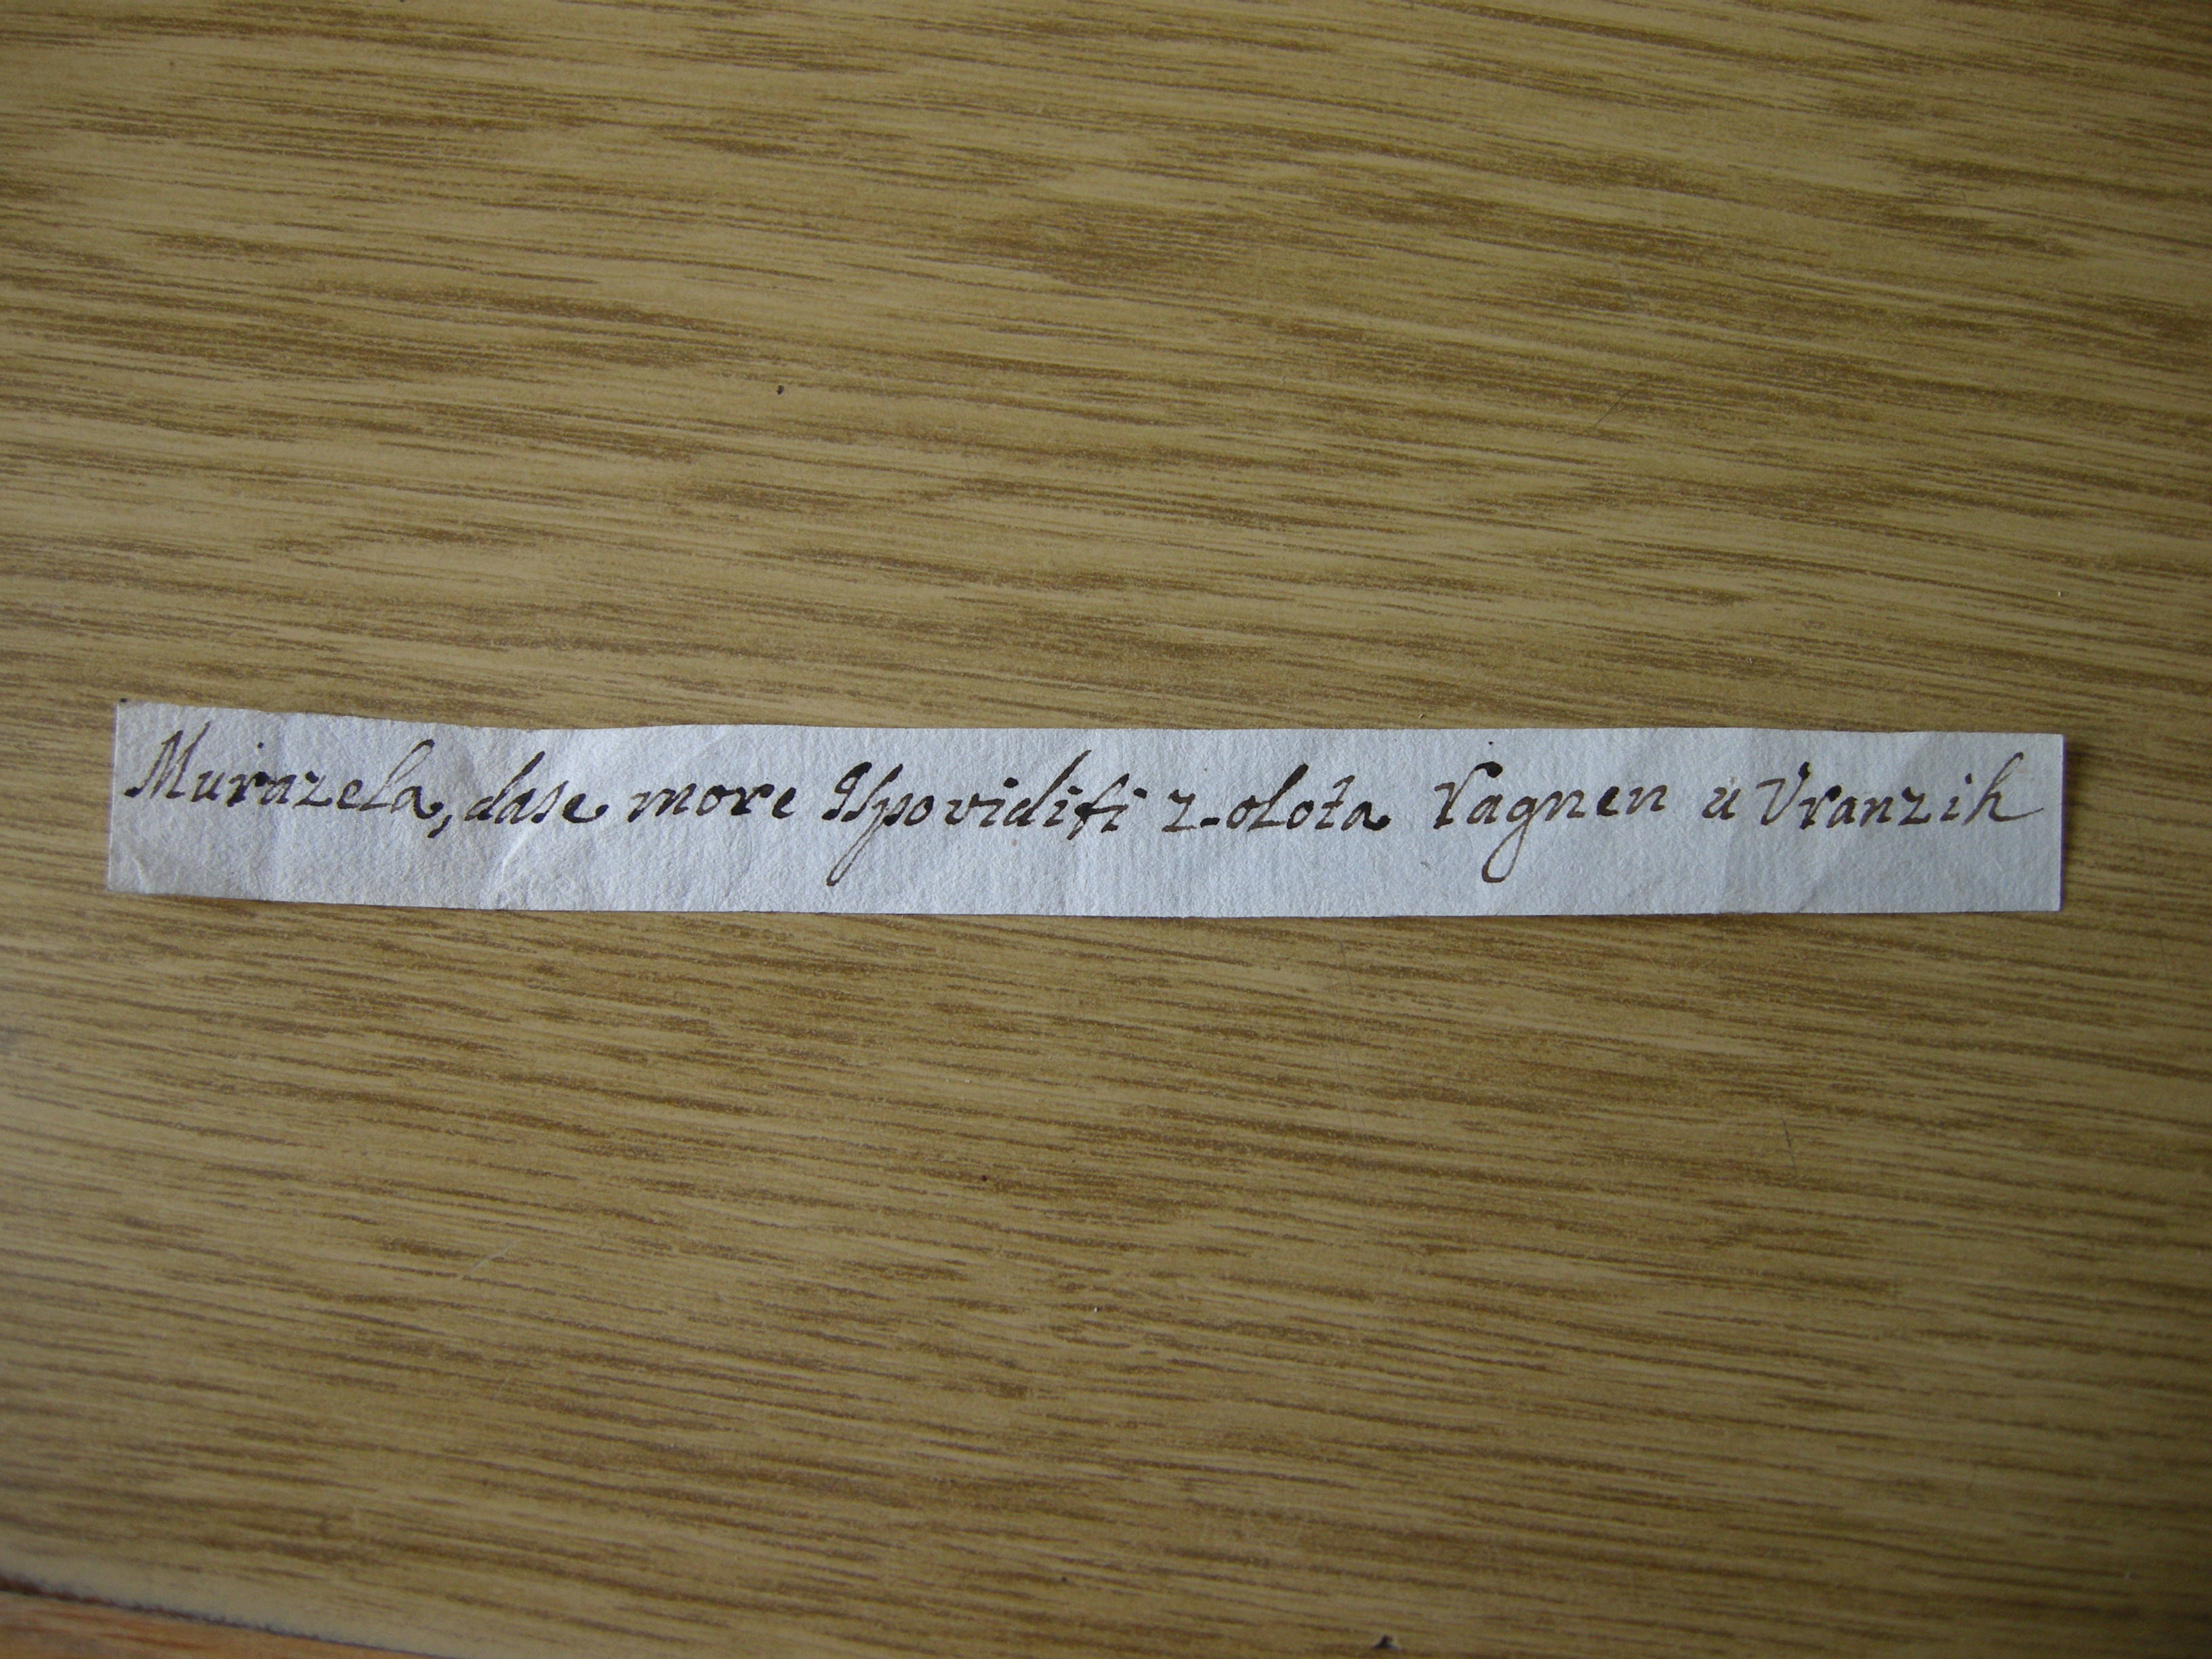 Murazela, dase more Ispoviditi z-olota Vagnen u Vranzih